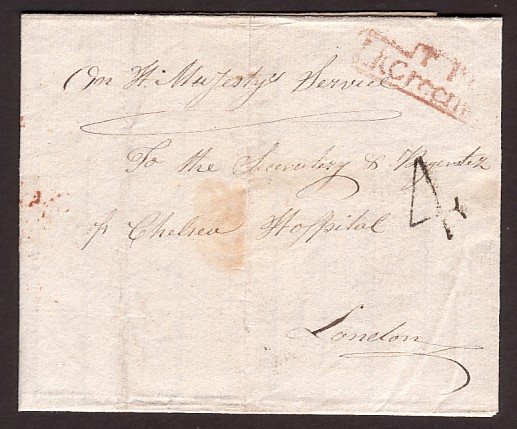 T P
Lk Green
On H. Majesty's Service
To the Secretary & Register
4
of Chelsea Hospital
London